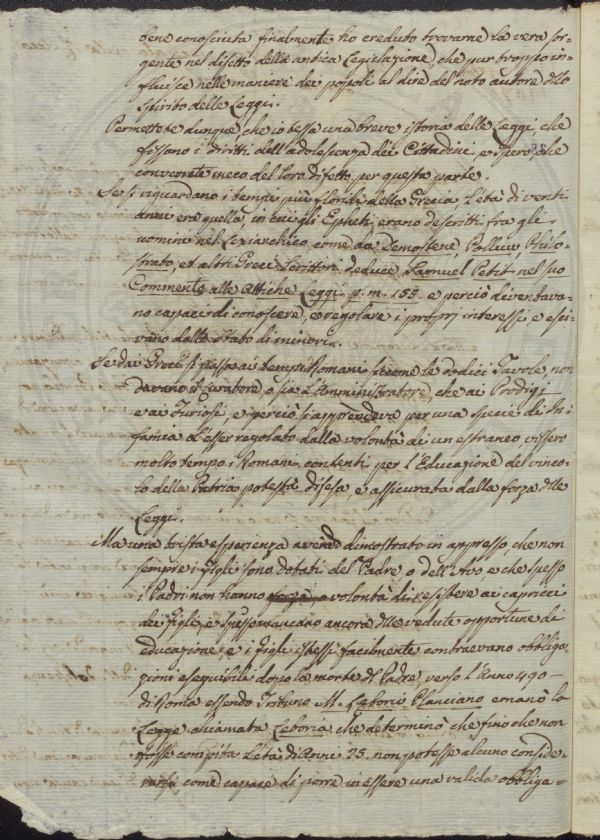 bene conosciuta finalmente ho creduto trovarne la vera sor-
gente nel difetto della antica Legislazione, che pur troppo in-
fluisce nelle maniere dei popoli al dire del noto autore dllo
Spirito delle Leggi.
Permettete dunque, che io tessa una breve istoria delle Leggi, che
fissano i diritti dell'adolescenza dei Cittadini, e spero, che
converrete meco del loro difetto per questa parte.
Se si riguardano i tempi più floridi della Grecia, l'età di venti
anni era quella, in cui gli Epheti, erano descritti fra gli
uomini nel Lexiarchico, come da Demostene, Polluce, Philo-
strato, et altri Greci Scrittori deduce Samuel Petit nel suo
Comento alle Attiche Leggi p. m. 155. e perciò diventava-
no capaci di conoscere, e regolare i proprj interessi e esci-
vano dallo stato di minoria.
Se dai Greci si passa ai tempi Romani siccome le dodici Tavole, non
davano il Curatore o sia l'Amministratore, che ai Prodigi
e ai Furiosi, e perciò si apprendeva per una specie di In-
famia l'esser regolato dalla volontà di un estraneo vissero
molto tempo i Romani contenti per l'Educazione del vinco-
lo della Patria potestà difesa e assicurata dalla forza dlle
Leggi.
Ma una trista esperienza avendo dimostrato in appresso, che non
sempre i Figli sono dotati del Padre o dell'Avo, e che spesso
i Padri non hanno forza o volontà di resistere ai capricci
dei figli, e spesso mancano ancora dlle vedute opportune di
educazione, e i figli istessi facilmente contraevano obbliga-
zioni eseguibili dopo la morte dl Padre, verso l'Anno 490 -
di Roma essendo Tribuno M. Letorio Planciano emanò la
Legge chiamata Letoria che determinò che fino che non
fosse compita l'età di Anni 25. non potesse alcuno conside-
rarsi, come capace di porre in essere una valida obbliga=